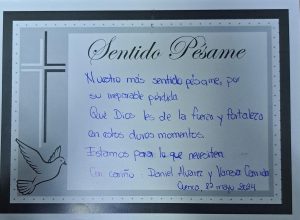 Sentido Pésame
Nuestro más sentido pésame, por
su irreparable pérdida.
Que Dios les de la fuerza y fortaleza
en estos duros momentos.
Estamos para lo que necesiten.
Con cariño: Daniel Alvarez y Vanessa
Cuenca, mayo 2024